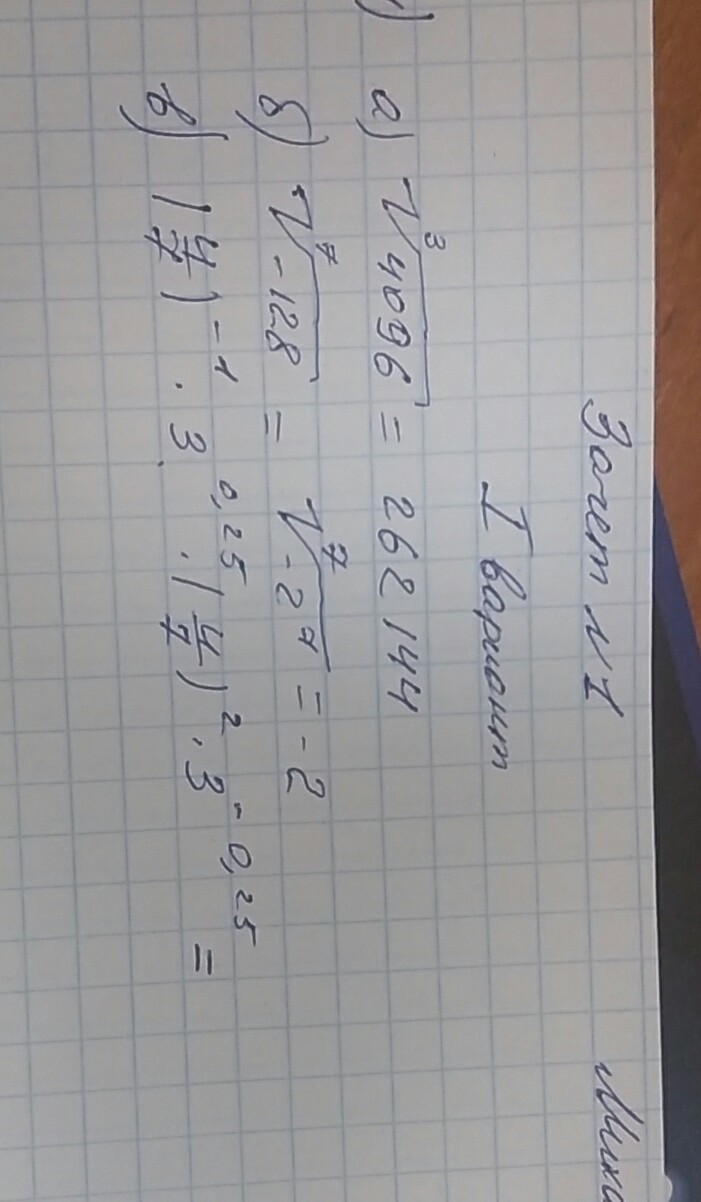 Зачет №1
I вариант
а) ∛4096 = 262144
б) ⁷√-128 = ⁷√-2⁷ = -2
в) (4/7)⁻¹ · 3^0,25 · (4/7)² · 3^-0,25 =